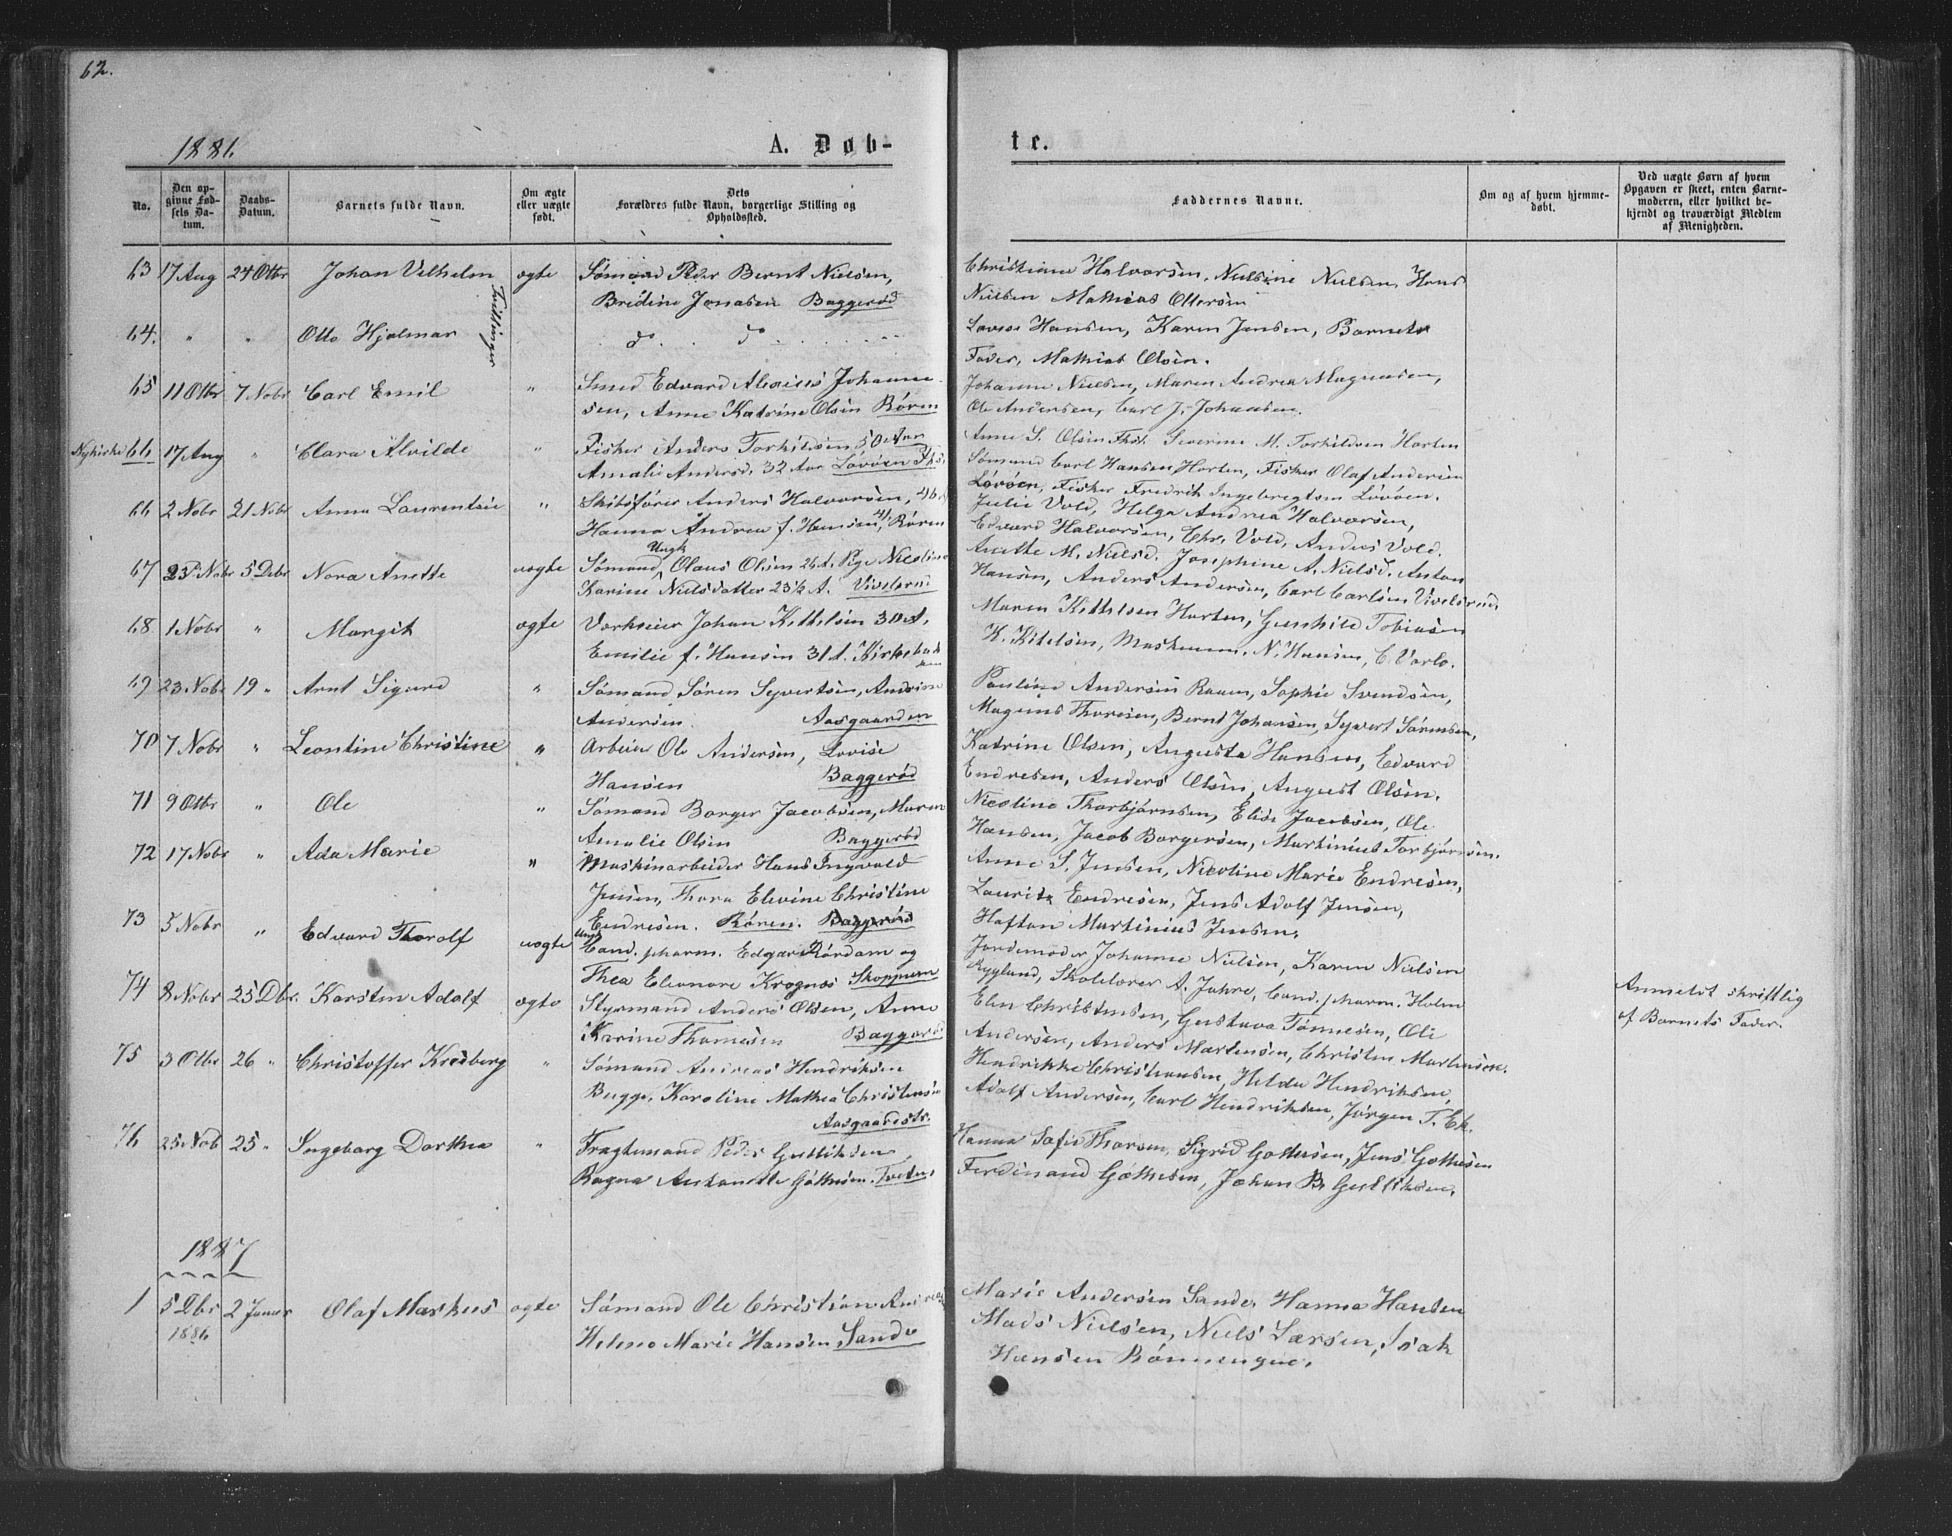 62.
1886.
A. Døb-
te.
No.
Den opgivne Fødsels Datum.
Daabs-Datum.
Barnets fulde Navn.
Om ægte eller uægte født.
Dets Forældres fulde Navn, borgerlige Stilling og Opholdssted.
Faddernes Navne.
Om og af hvem hjemmedøbt.
Ved uægte Børn af hvem Opgaven er skeet, enten Barnemoderen, eller hvilket bekjendt og troværdigt Medlem af Menigheden.
63 17 Aug 24 Otbr Johan Vilhelm ægte Sømand Peder Bernt Nielsen,
Bredine Jonasen Baggerød
Christiane Halvorsen, Nielsine Nielsen, Hans
Nielsen Mathias Ottersen
Tvillinger
64. " " Otto Hjalmar do do
Lovise Hansen, Karen Jensen, Barnets
Fader, Mathias Olsen.
65 11 Otbr 7 Nobr Carl Emil " Smed Edvard Alexius Johanne-
sen, Anne Katrine Olsen Røren
Johanne Nielsen, Maren Andrea Magnusen,
Ole Andersen, Carl J. Johansen.
Nykirke 66 17 Aug " Clara Alvilde " Fisker Anders Torkildsen 50 Aar
Amalie Andersd. 32 Aar Løvøen
Anne S. Olsen Severine M. Torkildsen Horten
Sømand Carl Hansen Horten, Fisker Olaf Andersen
Løvøen, Fisker Fredrik Ingebregtsen Løvøen.
66 2 Nobr 21 Nobr Anna Laurentsie " Skibsfører Anders Halvorsen, 46
Hanna Andrea f. Hansen 41, Røren
Julie Vold, Helga Andrea Halvorsen,
Edvard Halvorsen, Chr. Vold, Anders Vold.
67 23 Nobr 5 Debr Nora Anette uægte Ungk Sømand Olaus Olsen 26 A. Pge Nicoline
Karine Nielsdatter 23½ A. Vivelsrød
Anette M. Nielsd. Josephine A. Nielsd. Anton
Hansen, Anders Andersen, Carl Carlsen Vivelsrød
68 1 Nobr " Margit ægte Værkseier Johan Kittelsen 30 A,
Emilie f. Hansen 31 A. Kirkebak
ken
Maren Kittelsen Horten, Gunhild Tobiasen
K. Kitelsen, N. Hansen, C. Varlo.
69 23 Nobr 19 " Arnt Sigurd " Sømand Søren Syvertsen, Andrine
Andersen. Aasgaarden
Pauline Andersen Rauen, Sophie Svendsen,
Magnus Thoresen, Bernt Johansen, Syvert Sørensen,
70 7 Nobr " Leontine Christine " Arbeider Ole Andersen, Lovise
Hansen Baggerød
Katrine Olsen, Augusta Hansen, Edvard
Endresen, Anders Olsen, August Olsen.
71 9 Otbr " Ole " Sømand Borger Jacobsen, Maren
Amalie Olsen Baggerød
Nicoline Thorbjørnsen, Elise Jacobsen, Ole
Hansen, Jacob Borgersen, Martinius Torbjørnsen.
72 17 Nobr " Ada Marie " Maskinarbeider Hans Ingvald
Jensen, Thora Elevine Christine
Endresen. Røren. Baggerød
Anne S. Jensen, Nicoline Marie Endresen,
Lauritz Endresen, Jens Adolf Jensen,
Haftan Martinius Jensen.
73 5 Nobr " Edvard Thorolf uægte Ungk Cand. pharm. Edgar Rørdam og
Thea Eleonore Krognæs Skoppum
Jordemoder Johanne Nielsen, Karen Nielsen
Rygland, Skolelærer A. Jahre, Cand. pharm. Holm
Anmeldt skriftlig
af Barnets Fader.
74 8 Nobr 25 Dbr. Karsten Adolf ægte Styrmand Anders Olsen, Anne
Karine Thomesen Baggerød
Elen Christensen, Gustava Tønnesen, Ole
Andersen, Anders Martensen, Christen Martinsen.
75 3 Otbr 26 " Christoffer Krosberg " Sømand Andreas Hendriksen
Bugge, Karoline Mathea Christensen
Aasgaardstr.
Hendrikke Christiansen, Helda Hendriksen,
Adolf Andersen, Carl Hendriksen, Jørgen T. Ek.
76 25 Nob 25 " Ingeborg Dorthea " Fragtemand Peder Gulliksen,
Ragna Antonette Gøthesen. Tveten
Hanna Sofie Thorsen, Sigrid Gøthesen, Jens Gøthesen
Ferdinand Gøthesen, Johan B. Gulliksen.
1887
1 5 Dbr 1886 2 Januar Olaf Markus ægte Sømand Ole Christian Andreas
Helene Marie Hansen Sande
Marie Andersen Sande, Hanna Hansen
Mads Nielsen, Niels Larsen, Isak
Hansen Rønnengne.